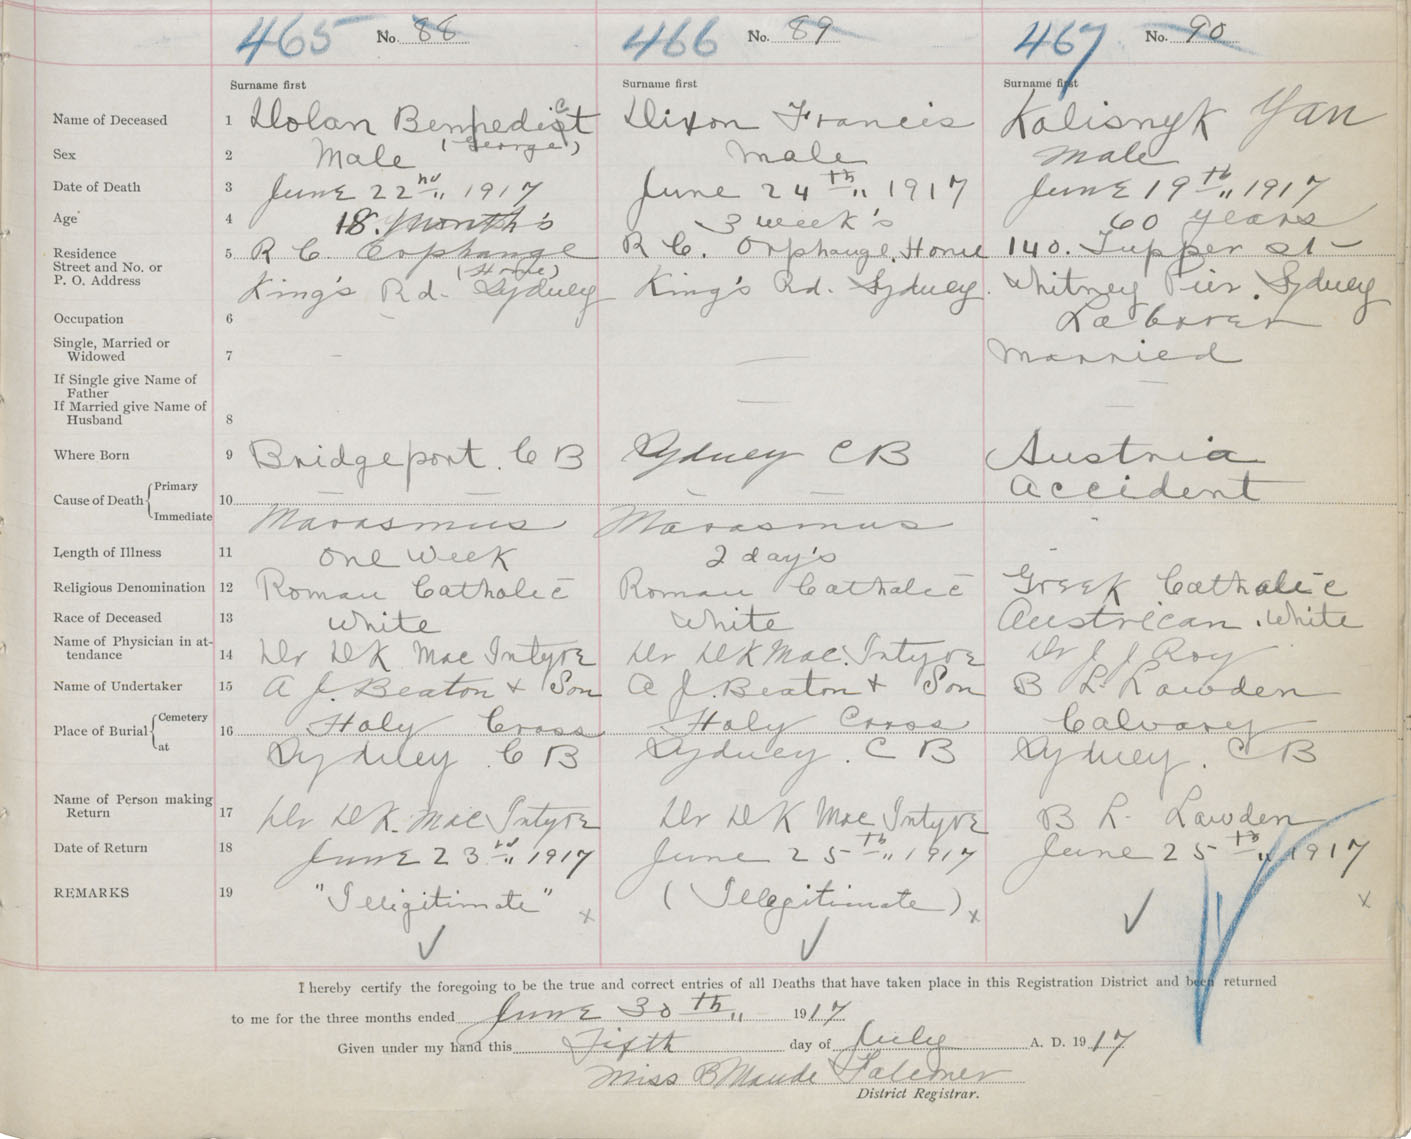 465 No. 88 466 No. 89 467 No. 90
Surname first Surname first Surname first
Name of Deceased 1 Dolan Bennedict Dixon Francis Kolisnyk Yan
(George)
Sex 2 Male male male
Date of Death 3 June 22nd 1917 June 24th 1917 June 19th 1917
Age 4 18. Month's 3 week's 60 years
Residence 5 R C Orphange R C. Orphauge, Home 140. Tupper st
Street and No. or (Home)
P. O. Address King's Rd. Sydney King's Rd. Sydney. Whitney Pier. Sydney
Occupation 6 Laborer
Single, Married or
Widowed 7 Married
If Single give Name of
Father
If Married give Name of
Husband 8
Where Born 9 Bridgeport. C B Sydney C B Austria
Cause of Death Primary 10 Accident
Immediate Marasmus Marasmus
Length of Illness 11 One Week 2 day's
Religious Denomination 12 Roman Catholic Roman Catholic Greek Catholic
Race of Deceased 13 White White Austrican. White
Name of Physician in at-
tendance 14 Dr D K MacIntyre Dr D K MacIntyre Dr J J Roy
Name of Undertaker 15 A J. Beaton + Son A J. Beaton + Son B L. Lowden
Place of Burial Cemetery 16 Holy Cross Holy Cross Calvary
at Sydney C B Sydney. C B Sydney. C B
Name of Person making
Return 17 Dr D K. MacIntyre Dr D K MacIntyre B L. Lawden
Date of Return 18 June 23rd 1917 June 25th 1917 June 25th 1917
REMARKS 19 "Illigitimate" x (Illegitimate) x x
I hereby certify the foregoing to be the true and correct entries of all Deaths that have taken place in this Registration District and been returned
to me for the three months ended June 30th 1917
Given under my hand this Fifth day of July A. D. 1917
Miss B Maude Falconer
District Registrar.